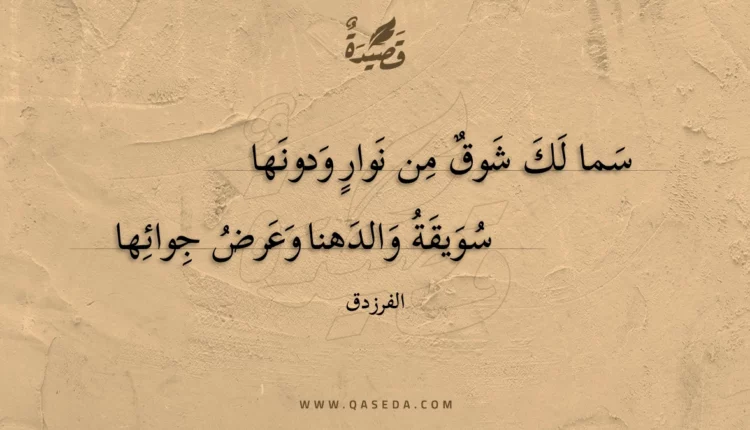 قَصِيدَةٌ
سَما لَكَ شَوقٌ مِن نَوارٍ وَدونَها
سُوَيقَةُ وَالدَهنا وَعَرضُ جِوائِها
الفرزدق
WWW.QASEDA.COM